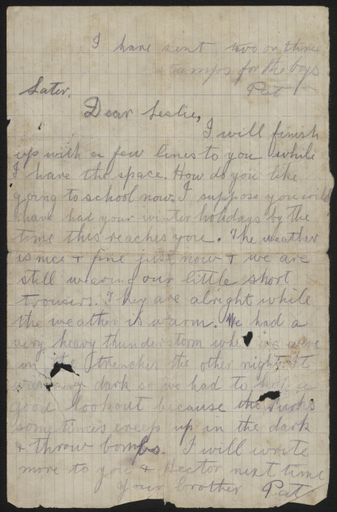 I have sent two or three
stamps for the boys
Pat
Later.
Dear Leslie,
I will finish
up with a few lines to you while
I have the space. How do you like
going to school now. I suppose you will
have had your winter holidays by the
time this reaches you. The weather
is nice + fine just now + we are
still wearing our little short
trousers. They are alright while
the weather is warm. We had a
very heavy thunderstorm when we were
in the trenches the other night. It
was very dark so we had to
good lookout because the Turks
sometimes creep up in the dark
+ throw bombs. I will write
more to you + Hector next time
Your brother Pat